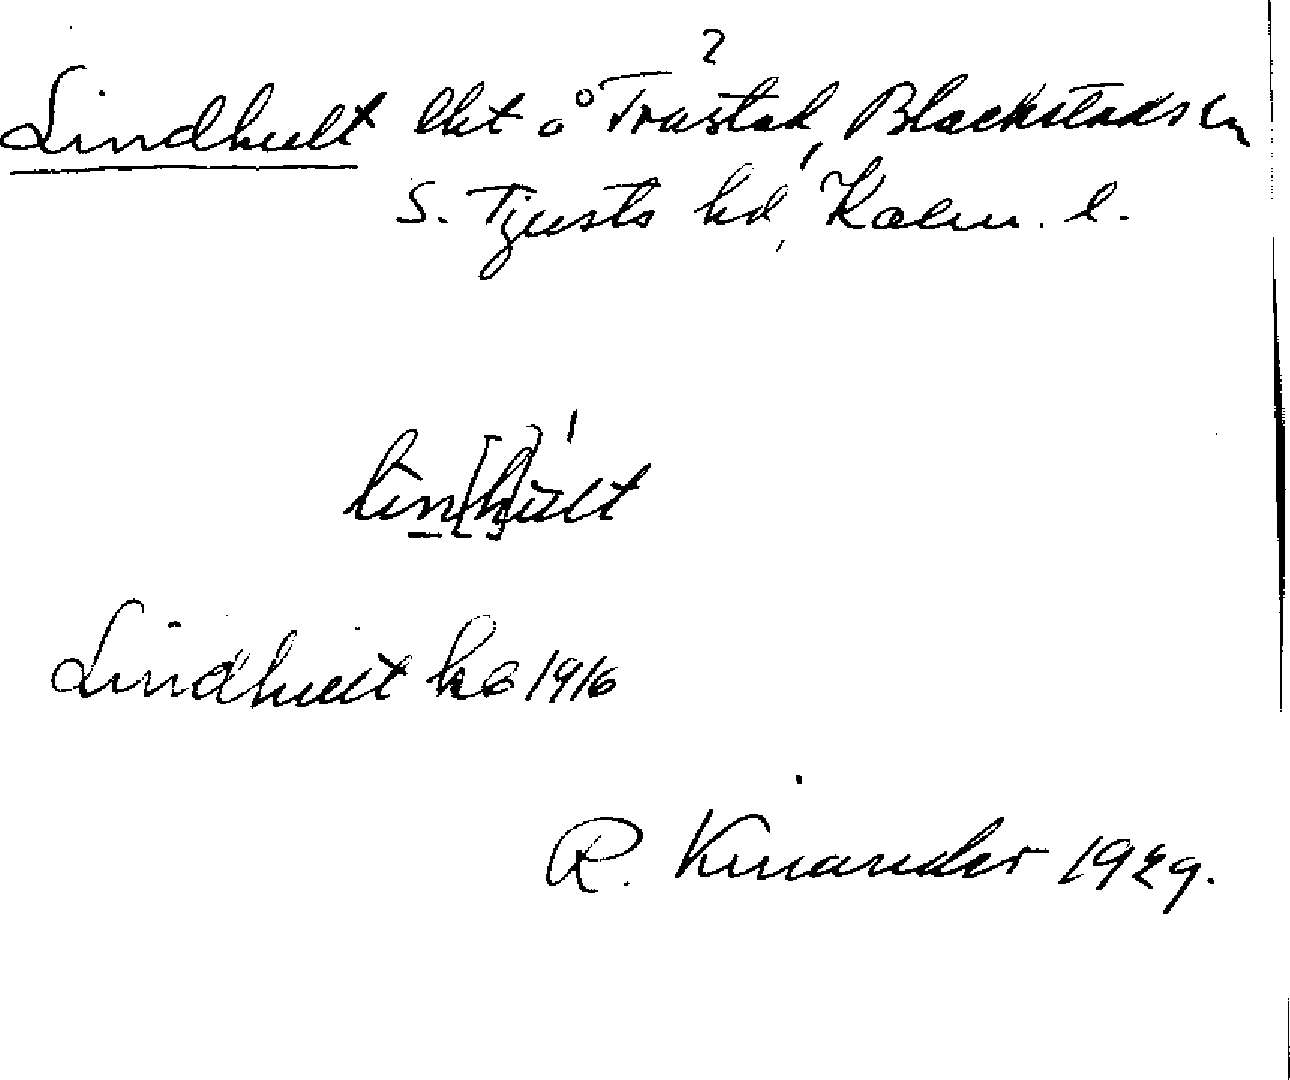 2
Lindhult lht å Tråstad, Blackstads sn
S. Tjusts hd, Kalm. l.
lin[h]ult
Lindhult ke 1916
R. Kinander 1929.